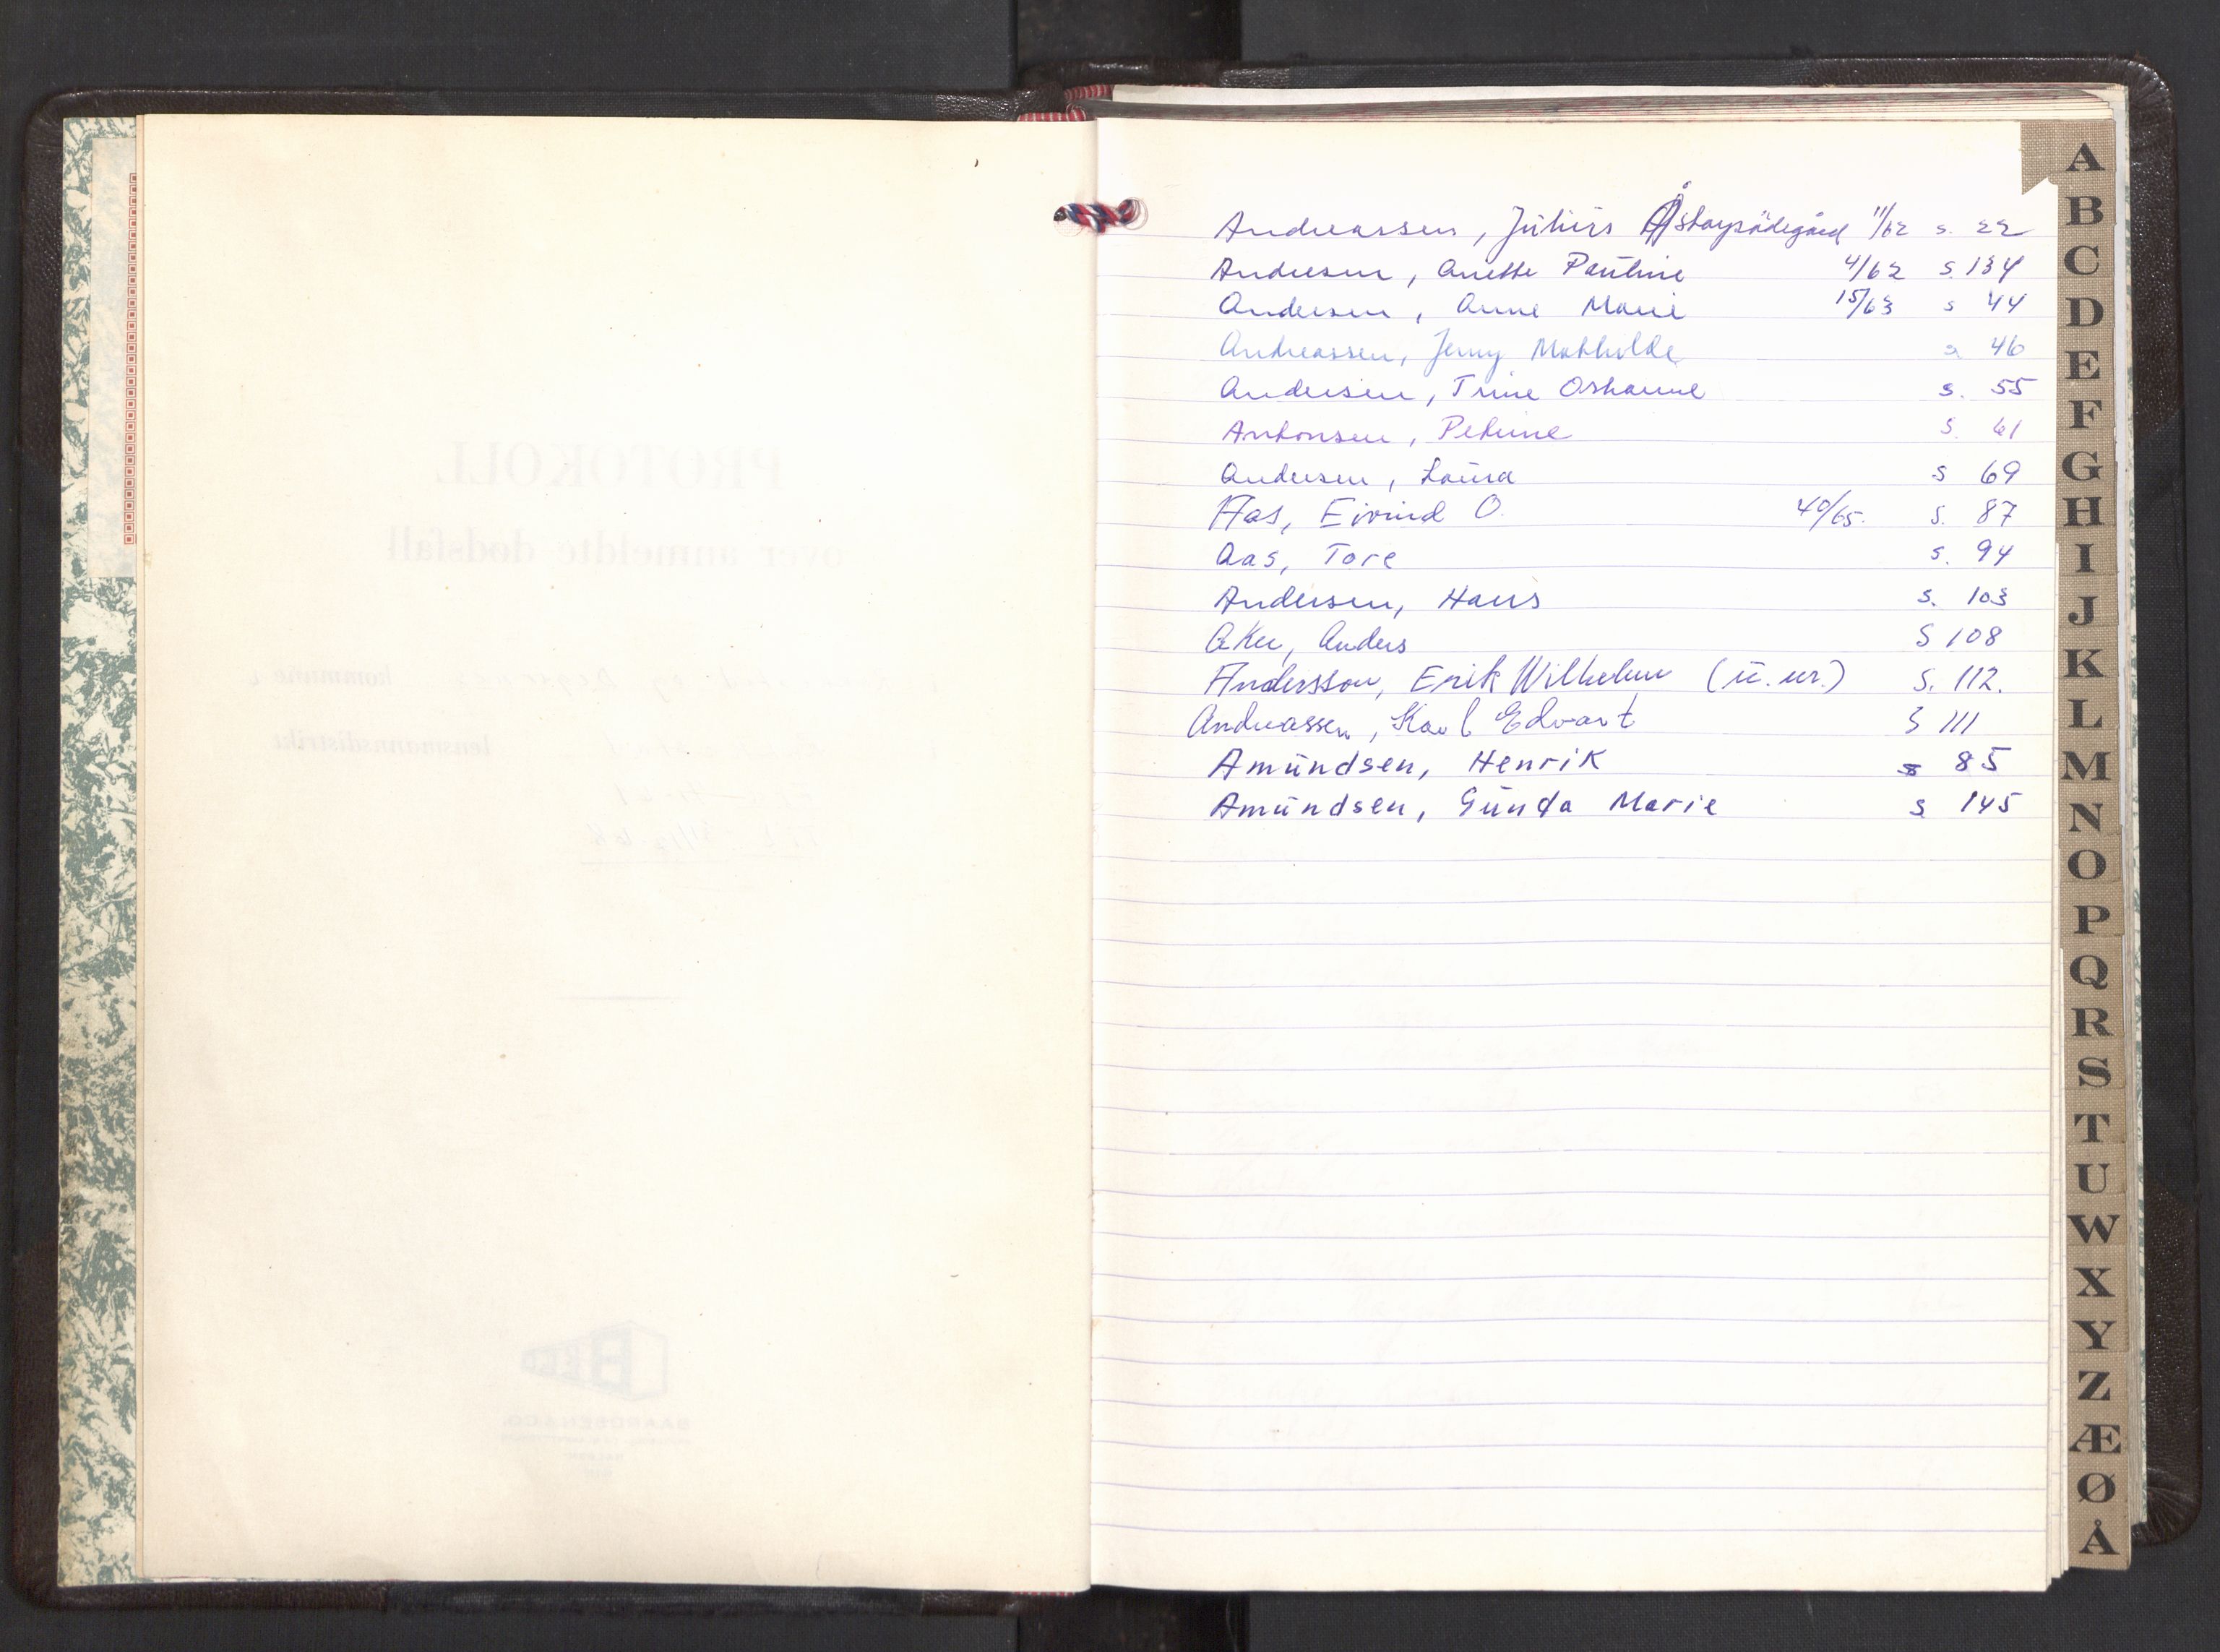 PROTOKOLL
over anmeldte dødsfall
kommune i
lensmannsdistrikt
Andreassen, Julius 11/62 s. 22
Andresen, Anette Pauline 4/62 s. 134
Andersen, Anne Marie 15/63 s 44
Andreassen, Jenny Mathilde s 46
Andersen, Trine Oshanne s. 55
Antonsen, Petrine s. 61
Andersen, Laura s 69
Aas, Eivind O. 40/65. s. 87
Aas, Tore s. 94
Andersen, Hans s. 103
Aker, Anders S 108
Andersson, Erik Wilhelm (u. nr.) S. 112.
Andreassen, Karl Edvart S 111
Amundsen, Henrik s 85
Amundsen, Gunda Marie s 145
A
B
C
D
E
F
G
H
I
J
K
L
M
N
O
P
Q
R
S
T
U
W
X
Y
Z
Æ
Ø
Å